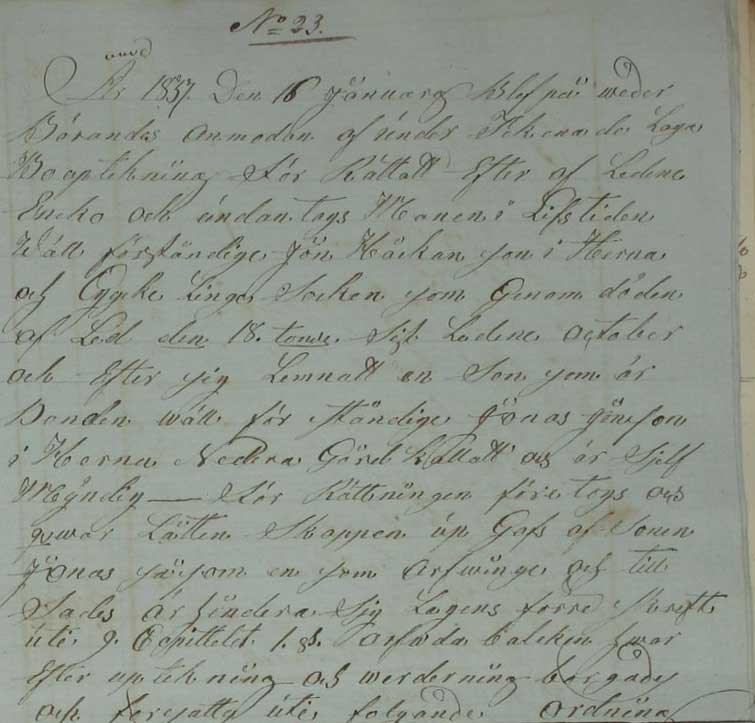 No 23.
År 1837. Den 16 Jänuary blef på weder
Börandes anmodan af under Tecknade Laga
Booptekning För Rättatt Efter af Ledne
Encko och undan tags Manen i Lifstiden
Wäll förständige Jön Häckan son i Herna
och Socken som Genom döden
af Led den 18. Sist Ledene october
och Efter sig Lemnatt en Son som är
Bonden wäll för ständige Jönas Jönson
i Herna Nedera Görd kallatt och är Sjelf
Myndig — För Rättningen före togs och
qwar Låtten Skappen up Gafs af Sonen
Jönas såsom en som arfwinge och till
Sades Lagens
uti 9. Capittelet 1. §. balcken
Efter uptekning och werderning
och uti folgande ordning